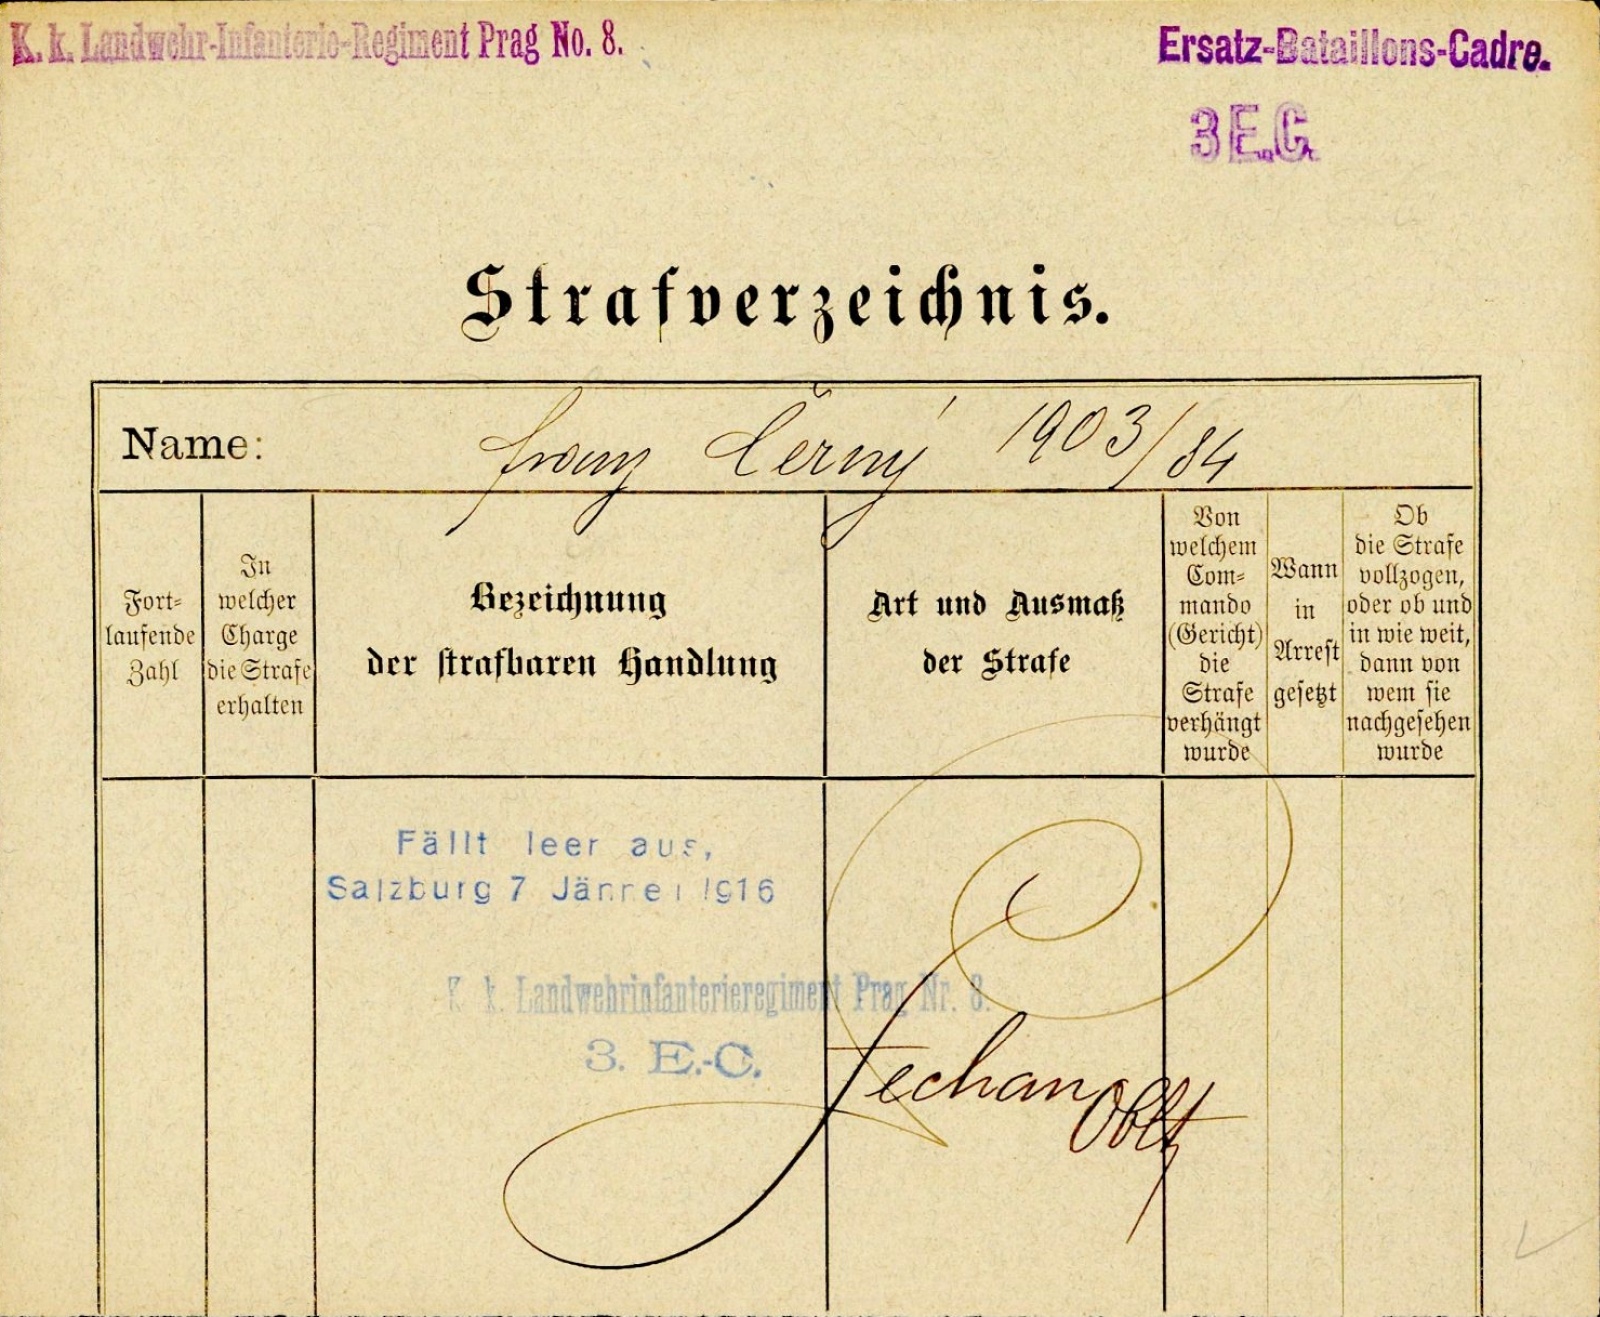 K. k. Landwehr-Infanterie-Regiment Prag No. 8.
Ersatz-Bataillons-Cadre.
3 E.C.
Strafverzeichnis.
Name: Franz Černý 1903/84
Fort-
laufende
Zahl
In
welcher
Charge
die Strafe
erhalten
Bezeichnung
der strafbaren Handlung
Art und Ausmaß
der Strafe
Von
welchem
Com-
mando
(Gericht)
die
Strafe
verhängt
wurde
Wann
in
Arrest
gesetzt
Ob
die Strafe
vollzogen,
oder ob und
in wie weit,
dann von
wem sie
nachgesehen
wurde
Fällt leer aus,
Salzburg 7 Jänner 1916
K. k. Landwehrinfanterieregiment Prag Nr. 8.
3. E.-C.
Oblt